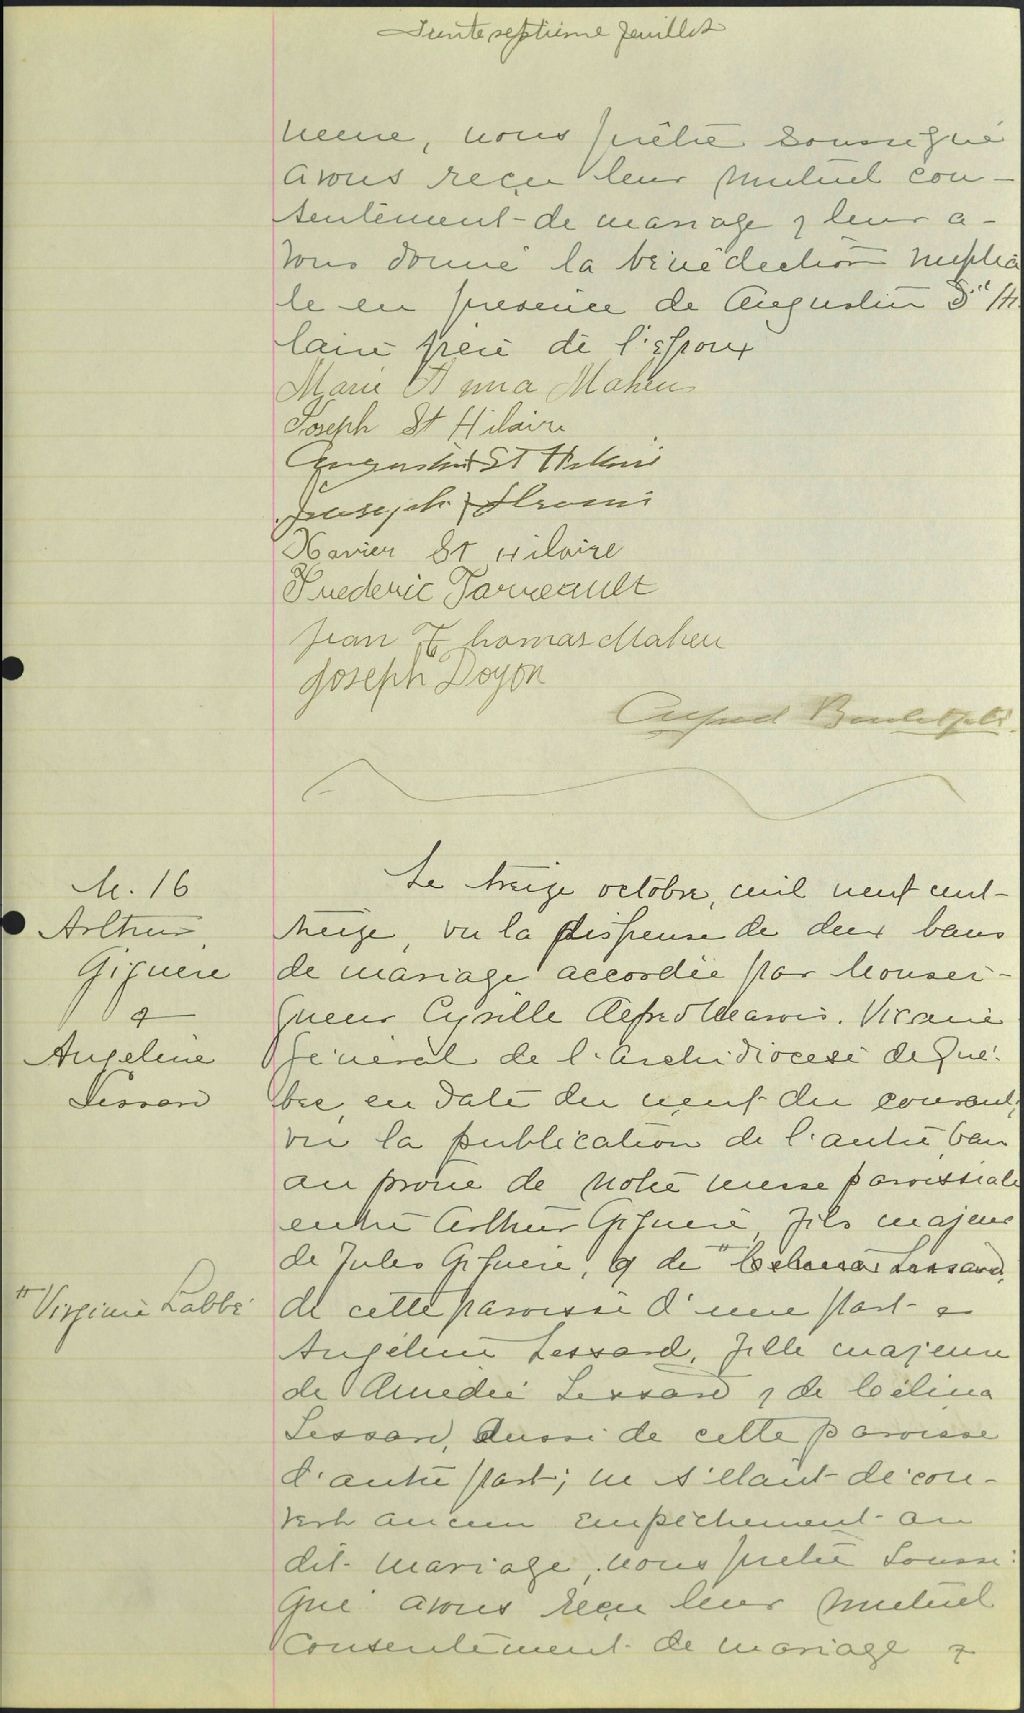 Trente septième feuillet
neuse, nous prêtre soussigné
avons reçu leur mutuel con-
sentement de mariage & leur a-
vons donné la bénédiction nuptia
le en présence de Augustin St Hi
laire frère de l'époux
Marie Anna Maheu
Joseph St Hilaire
Augustin St Hilaire
Joseph
Xavier St Hilaire
Frederic Tarreault
Jean Thomas Maheu
Joseph Doyon
Alfred
M. 16
Arthur
Giguère
&
Angeline
Lessard
Le treize octobre, mil neuf cent
treize, vu la dispense de deux bans
de mariage accordée par Monsei-
gneur Cyrille Alfred Marois. Vicaire
Général de l'Archidiocèse de Qué-
bec, en date du neuf du courant,
vu la publication de l'autre ban
au prône de notre messe paroissiale
entre Arthur Giguère, fils majeur
de Jules Giguère, & de " Celina Lessard,
" Virginie Labbé
de cette paroisse d'une part &
Angéline Lessard, fille majeure
de Amédée Lessard & de Célina
Lessard, aussi de cette paroisse
d'autre part; ne s'étant décou-
vert aucun empêchement au
dit mariage, nous prêtre soussi-
gné avons reçu leur mutuel
consentement de mariage &